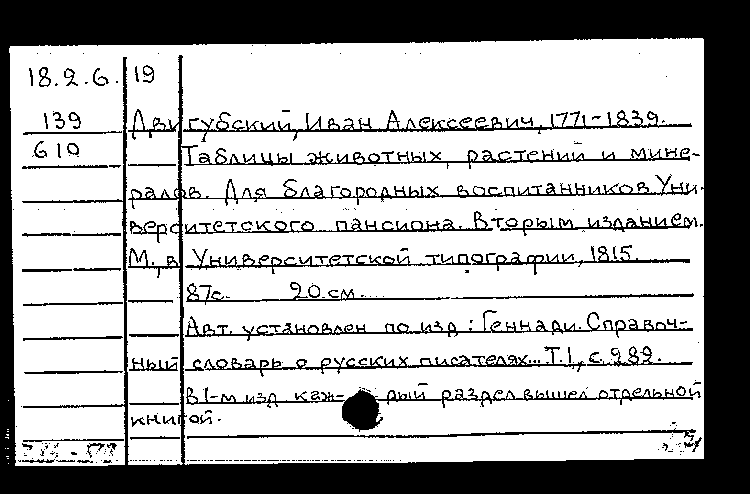 18.2.6. 19
139 Двигубский, Иван Алексеевич, 1771-1839.
610 Таблицы животных, растений и мине-
ралов. Для благородных воспитанников Уни-
верситетского пансиона. Вторым изданием.
М., в Университетской типографии, 1815.
87с. 20 см.
Авт. установлен по изд: Геннади. Справоч-
ный словарь о русских писателях... Т.1, с. 289.
В 1-м изд каж- дый раздел вышел отдельной
книгой.